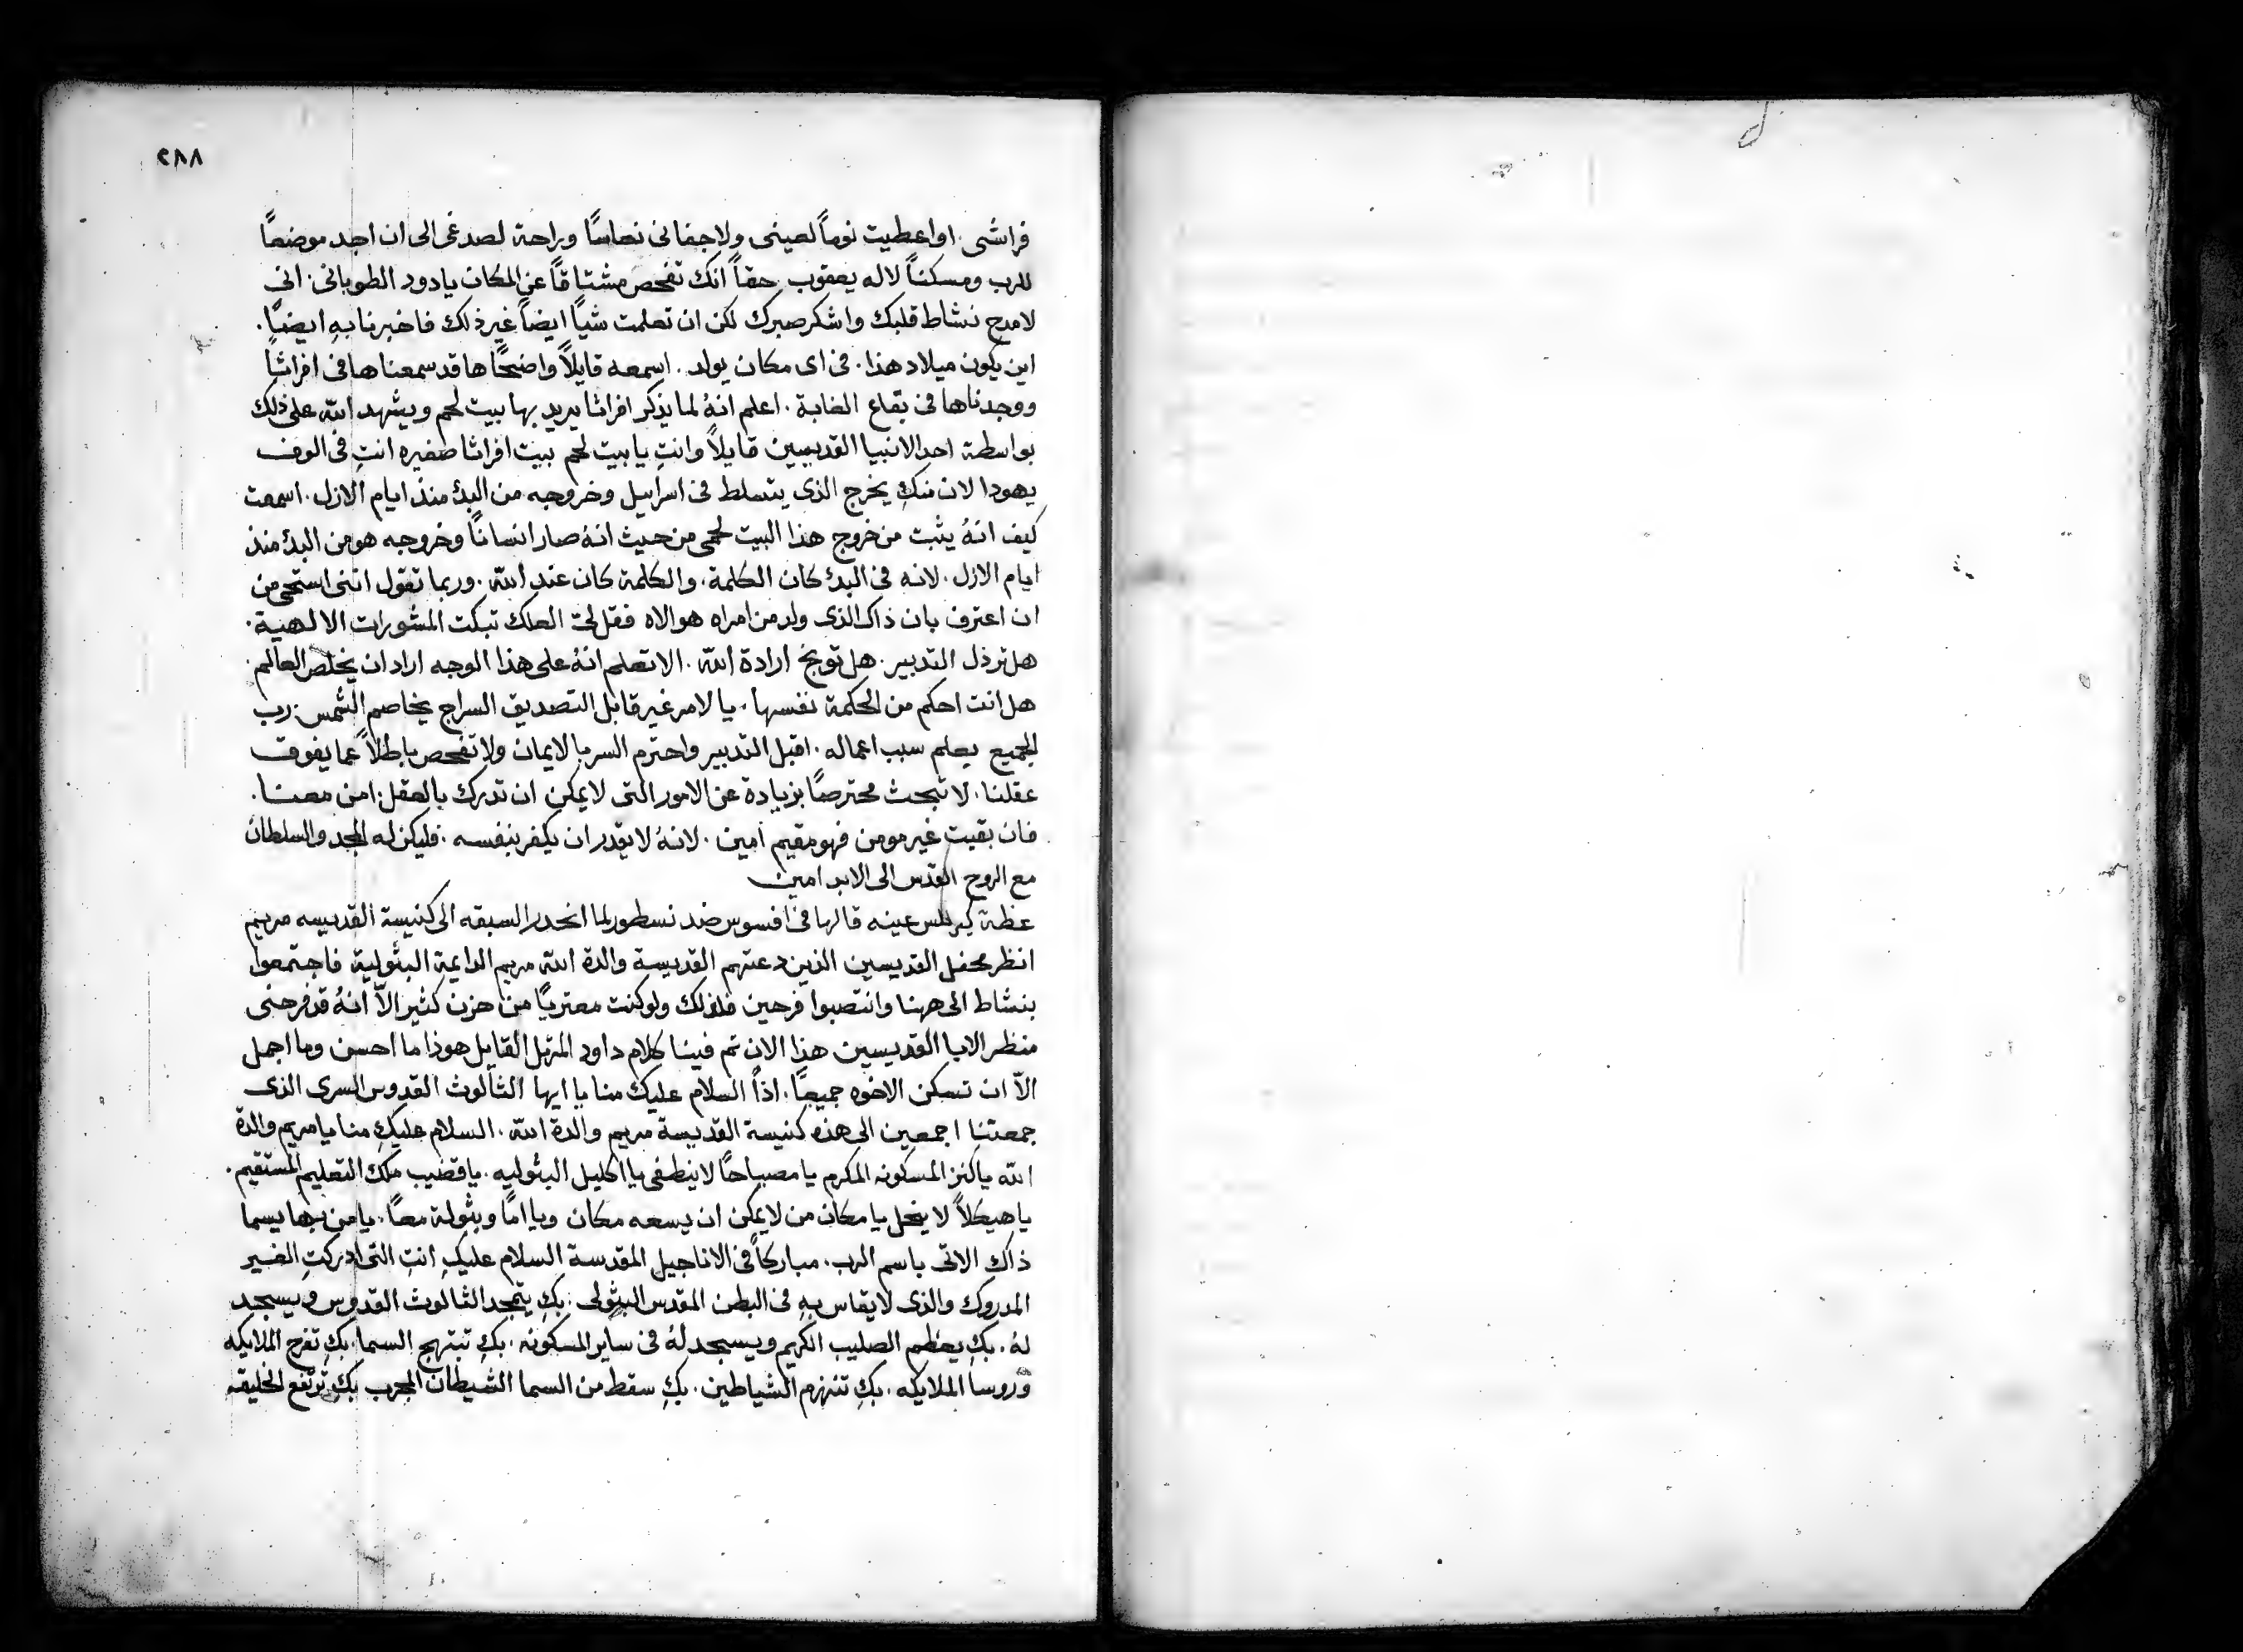 ٢٨٨
فراشى. او اعطيت نوماً لعينى ولاجفانى نعاسًا وراحة لصدغى الى ان اجد موضعاً
للرب ومسكناً لاله يعقوب حقاً انك تفحص مشتاقاً عن المكان يا دود الطوبانى. انى
لامدح نشاط قلبك واشكر صبرك لكن ان تعلمت شياً ايضاً غير ذلك فاخبرنا بهِ ايضًا.
اين يكون ميلاد هذا. فى اى مكان يولد. اسمعه قايلاً واضحًا ها قد سمعناها فى افراثا
ووجدناها فى بقاع الغابة. اعلم انهُ لما يذكر افراثا يريد بها بيت لحم ويشهد الله على ذلك
بواسطة احد الانبيا القديسين قايلاً وانتِ يا بيت لحم بيت افراثا صغيره انتِ فى الوف
يهودا لان منكِ يخرج الذى يتسلط فى اسراييل وخروجه من البدُ منذ ايام الازل. اسمعت
كيف انهُ يثبت من خروج هذا البيت لحمى من حيث انهُ صار انسانًا وخروجه هو من البدُ منذ
ايام الازل. لانه فى البدُ كان الكلمة. والكلمة كان عند الله. وربما تقول اننى استحى من
ان اعترف بان ذاك الذى ولد من امراه هو الاه فقل لى العلك تبكت المشورات الالهية.
هل ترذل التدبير. هل توبخ ارادة الله. الا تعلم انهُ على هذا الوجه اراد ان يخلص العالم.
هل انت احكم من الحكمة نفسها. يا لامر غير قابل التصديق السراج يخاصم الشمس. رب
الجميع يعلم سبب اعماله. اقبل التدبير واحترم السر بالايمان ولا تفحص باطلاً عما يفوق
عقلنا. لا تبحث محترصًا بزيادة عن الامور التى لا يمكن ان تدرك بالعقل. امن معنا.
فان بقيت غير مومن فهو مقيم امين. لانهُ لا يقدر ان يكفر بنفسه. فليكن له المجد والسلطان
مع الروح القدس الى الابد امين
عظة كيرلس عينه قالها فى افسوس ضد نسطور لما انحدر السبقه الى كنيسة القديسه مريم
انظر محفل القديسين الذين دعتهم القديسة والدة الله مريم الدايمة البثولية فاجتمعوا
بنشاط الى ههنا وانتصبوا فرحين فلذلك ولو كنت معتريًا من حزن كثير الاّ انهُ قد فرحنى
منظر الابا القديسين هذا الان تم فينا كلام داود المرتل القايل هوذا ما احسن وما اجمل
الاّ ان تسكن الاخوه جميعًا. اذاً السلام عليك منا يا ايها الثالوث القدوس السرى الذى
جمعتنا اجمعين الى هذه كنيسة القديسة مريم والدة الله. السلام عليكِ منا يا مريم والدة
الله يا كنز المسكونه المكرم يا مصباحًا لا ينطفى يا اكليل البثوليه. يا قضيب ملك التعليم المستقيم.
يا هيكلاً لا ينحل يا مكان من لا يمكن ان يسعه مكان ويا امًا وبثولة معًا. يا من بها يسما
ذاك الاتى باسم الرب. مباركاً فى الاناجيل المقدسة السلام عليكِ انتِ التى ادركتِ الغير
المدروك والذى لا يقاس بهِ فى البطن المقدس البثولى. بكِ يتمجد الثالوث القدوس ويسجد
لهُ. بكِ يعظم الصليب الكريم ويسجد لهُ فى ساير المسكونه. بكِ تبتهج السما. بكِ تفرح الملايكه
وروسا الملايكه. بكِ تنهزم الشياطين. بكِ سقط من السما الشيطان المجرب بكِ ترتفع الخليقه